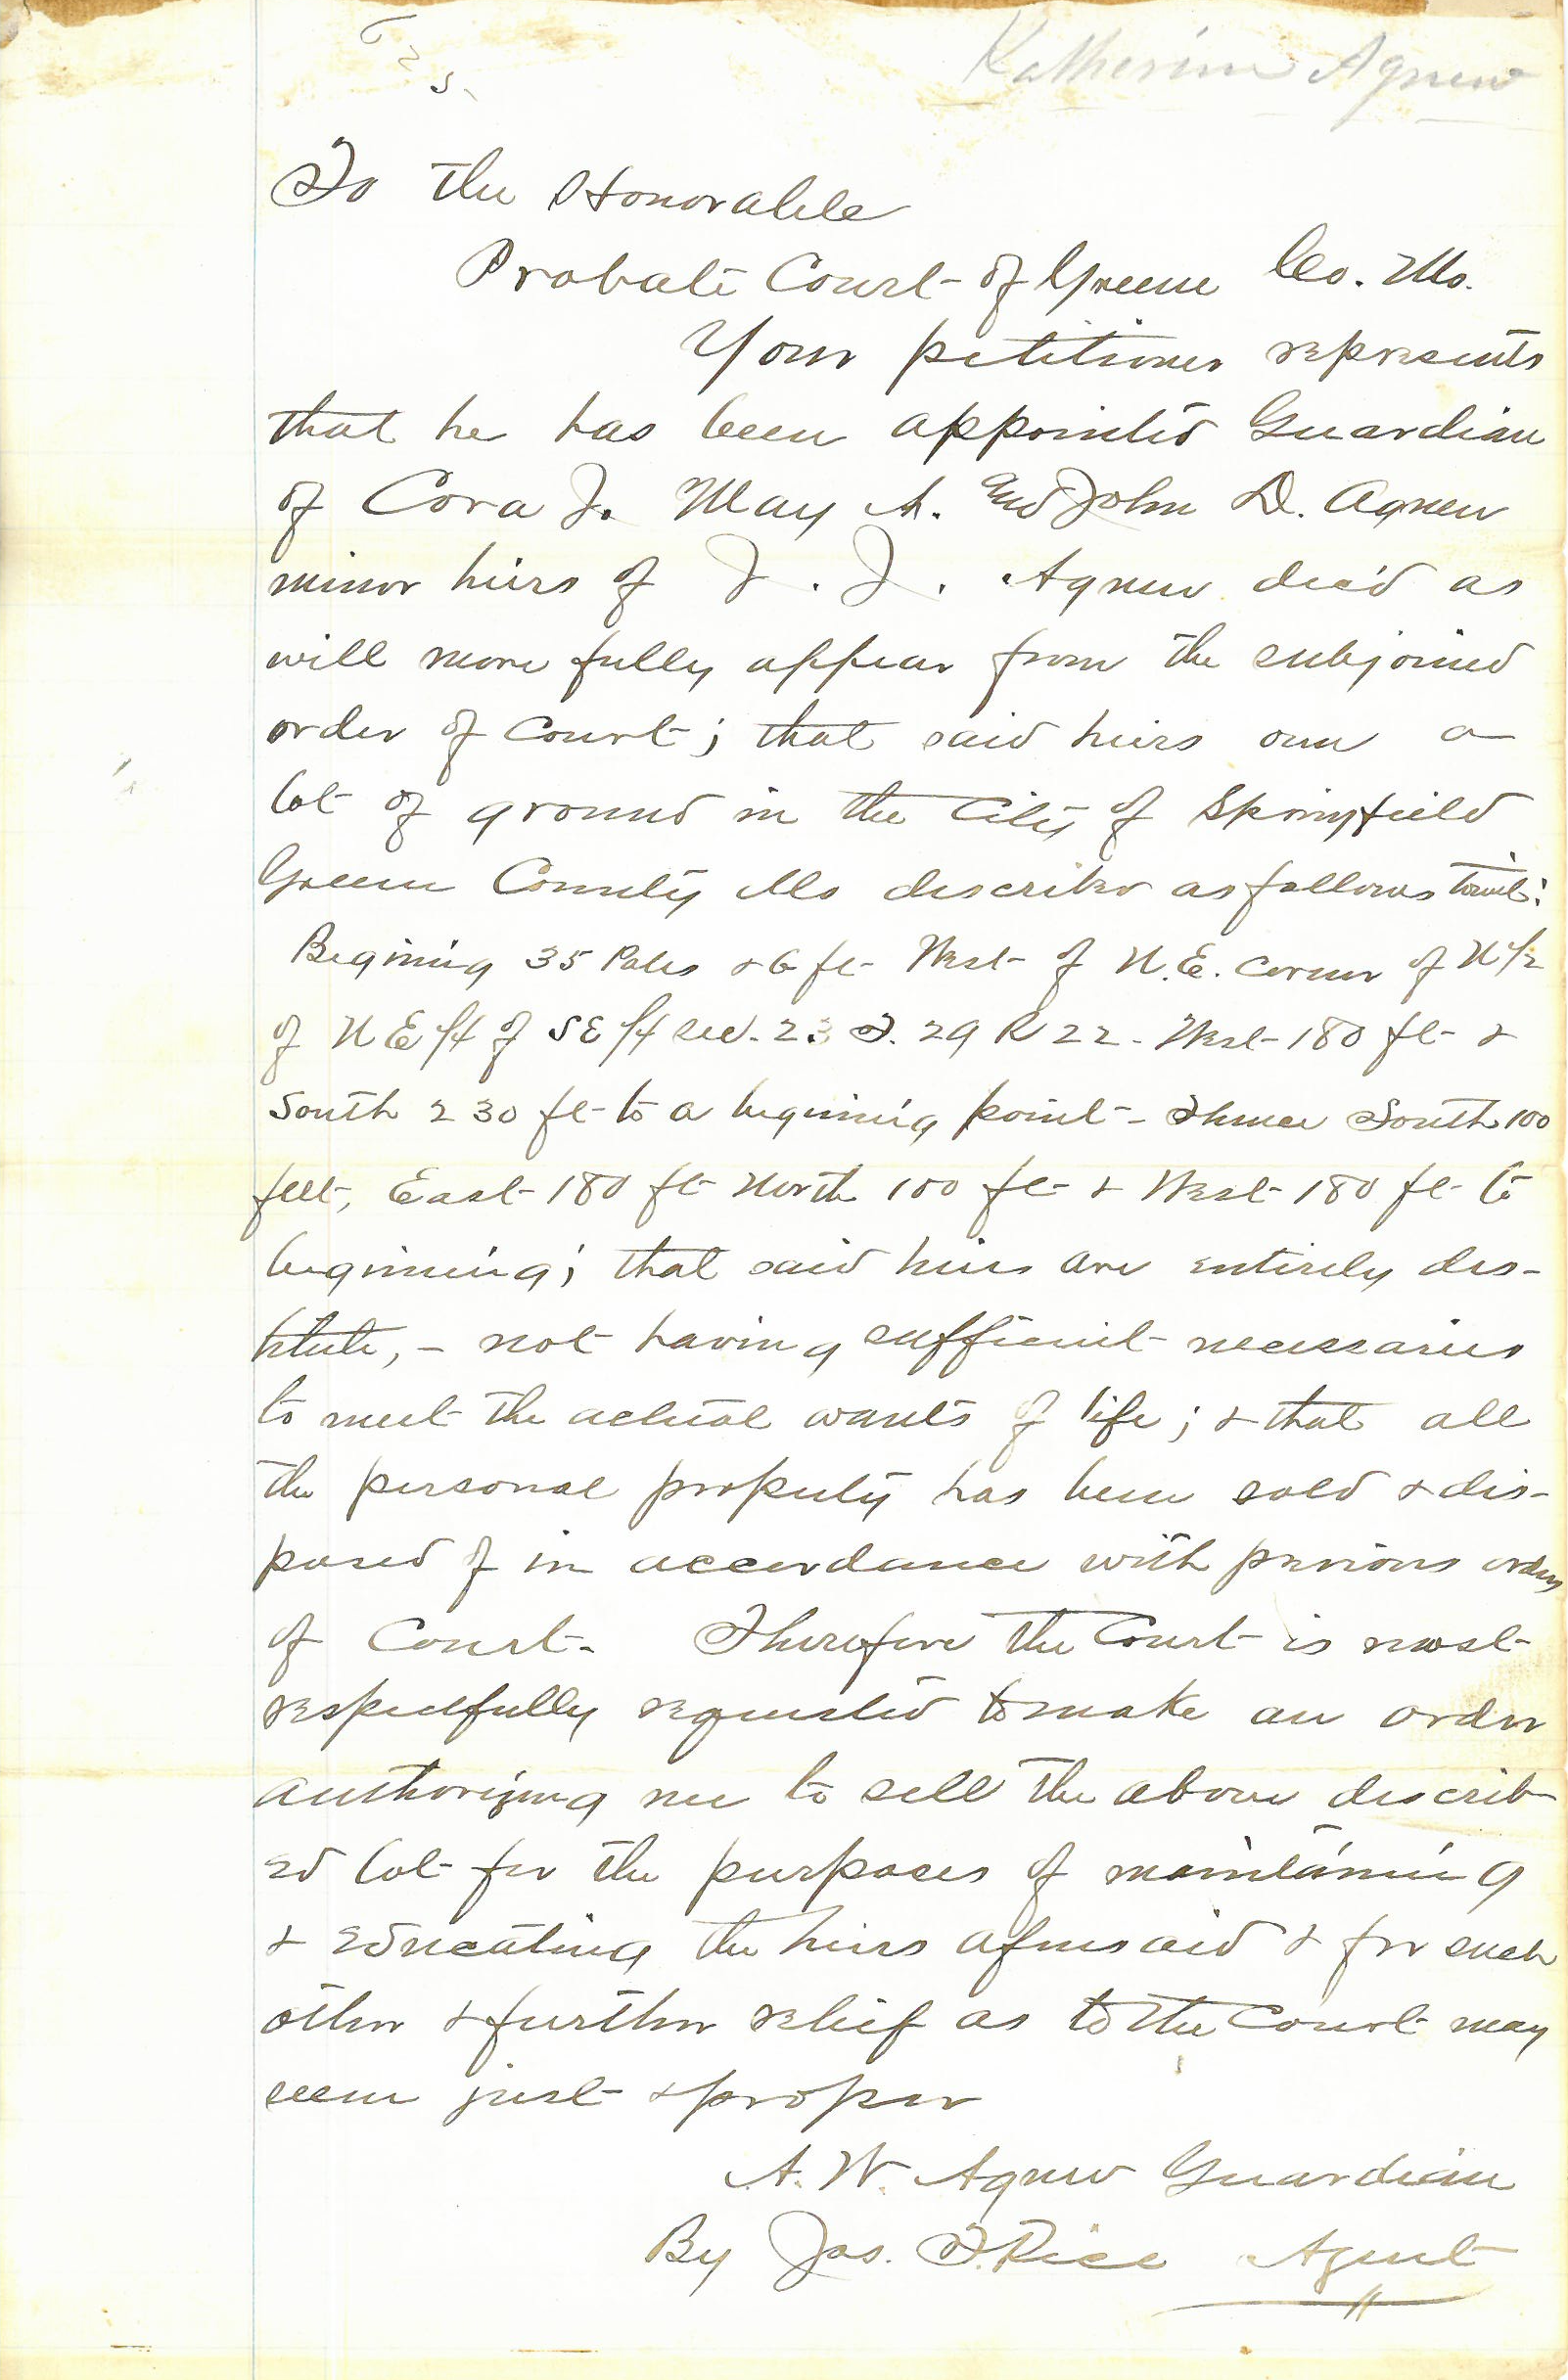 Katherine Agnew
To the Honorable
Probate Court of Greene Co. Mo.
Your petitioner represents
that he has been appointed Guardian
of Cora J. May A. and John D. Agnew
minor heirs of J. J. Agnew dec'd as
will more fully appear from the subjoined
order of Court; that said heirs own a
lot of ground in the City of Springfield
Greene County Mo described as follows towit:
Begining 35 Poles & 6 ft West of N.E. corner of N 1/2
of N E 1/4 of SE 1/4 sec. 23 T. 29 R 22 - West 180 ft &
South 230 ft to a begining point - Thence South 100
feet, East 180 ft North 100 ft & West 180 ft to
beginning; that said heirs are entirely des-
titute, - not having sufficient necessaries
to meet the actual wants of life; & that all
the personal property has been sold & dis-
posed of in accordance with previous orders
of Court - Therefore the Court is most
respectfully requested to make an order
authorizing me to sell the above describ-
ed lot for the purposes of maintaining
& educating the heirs aforesaid & for such
other & further relief as to the Court may
seem just & proper
A. W. Agnew Guardian
By Jas. T. Rice Agent